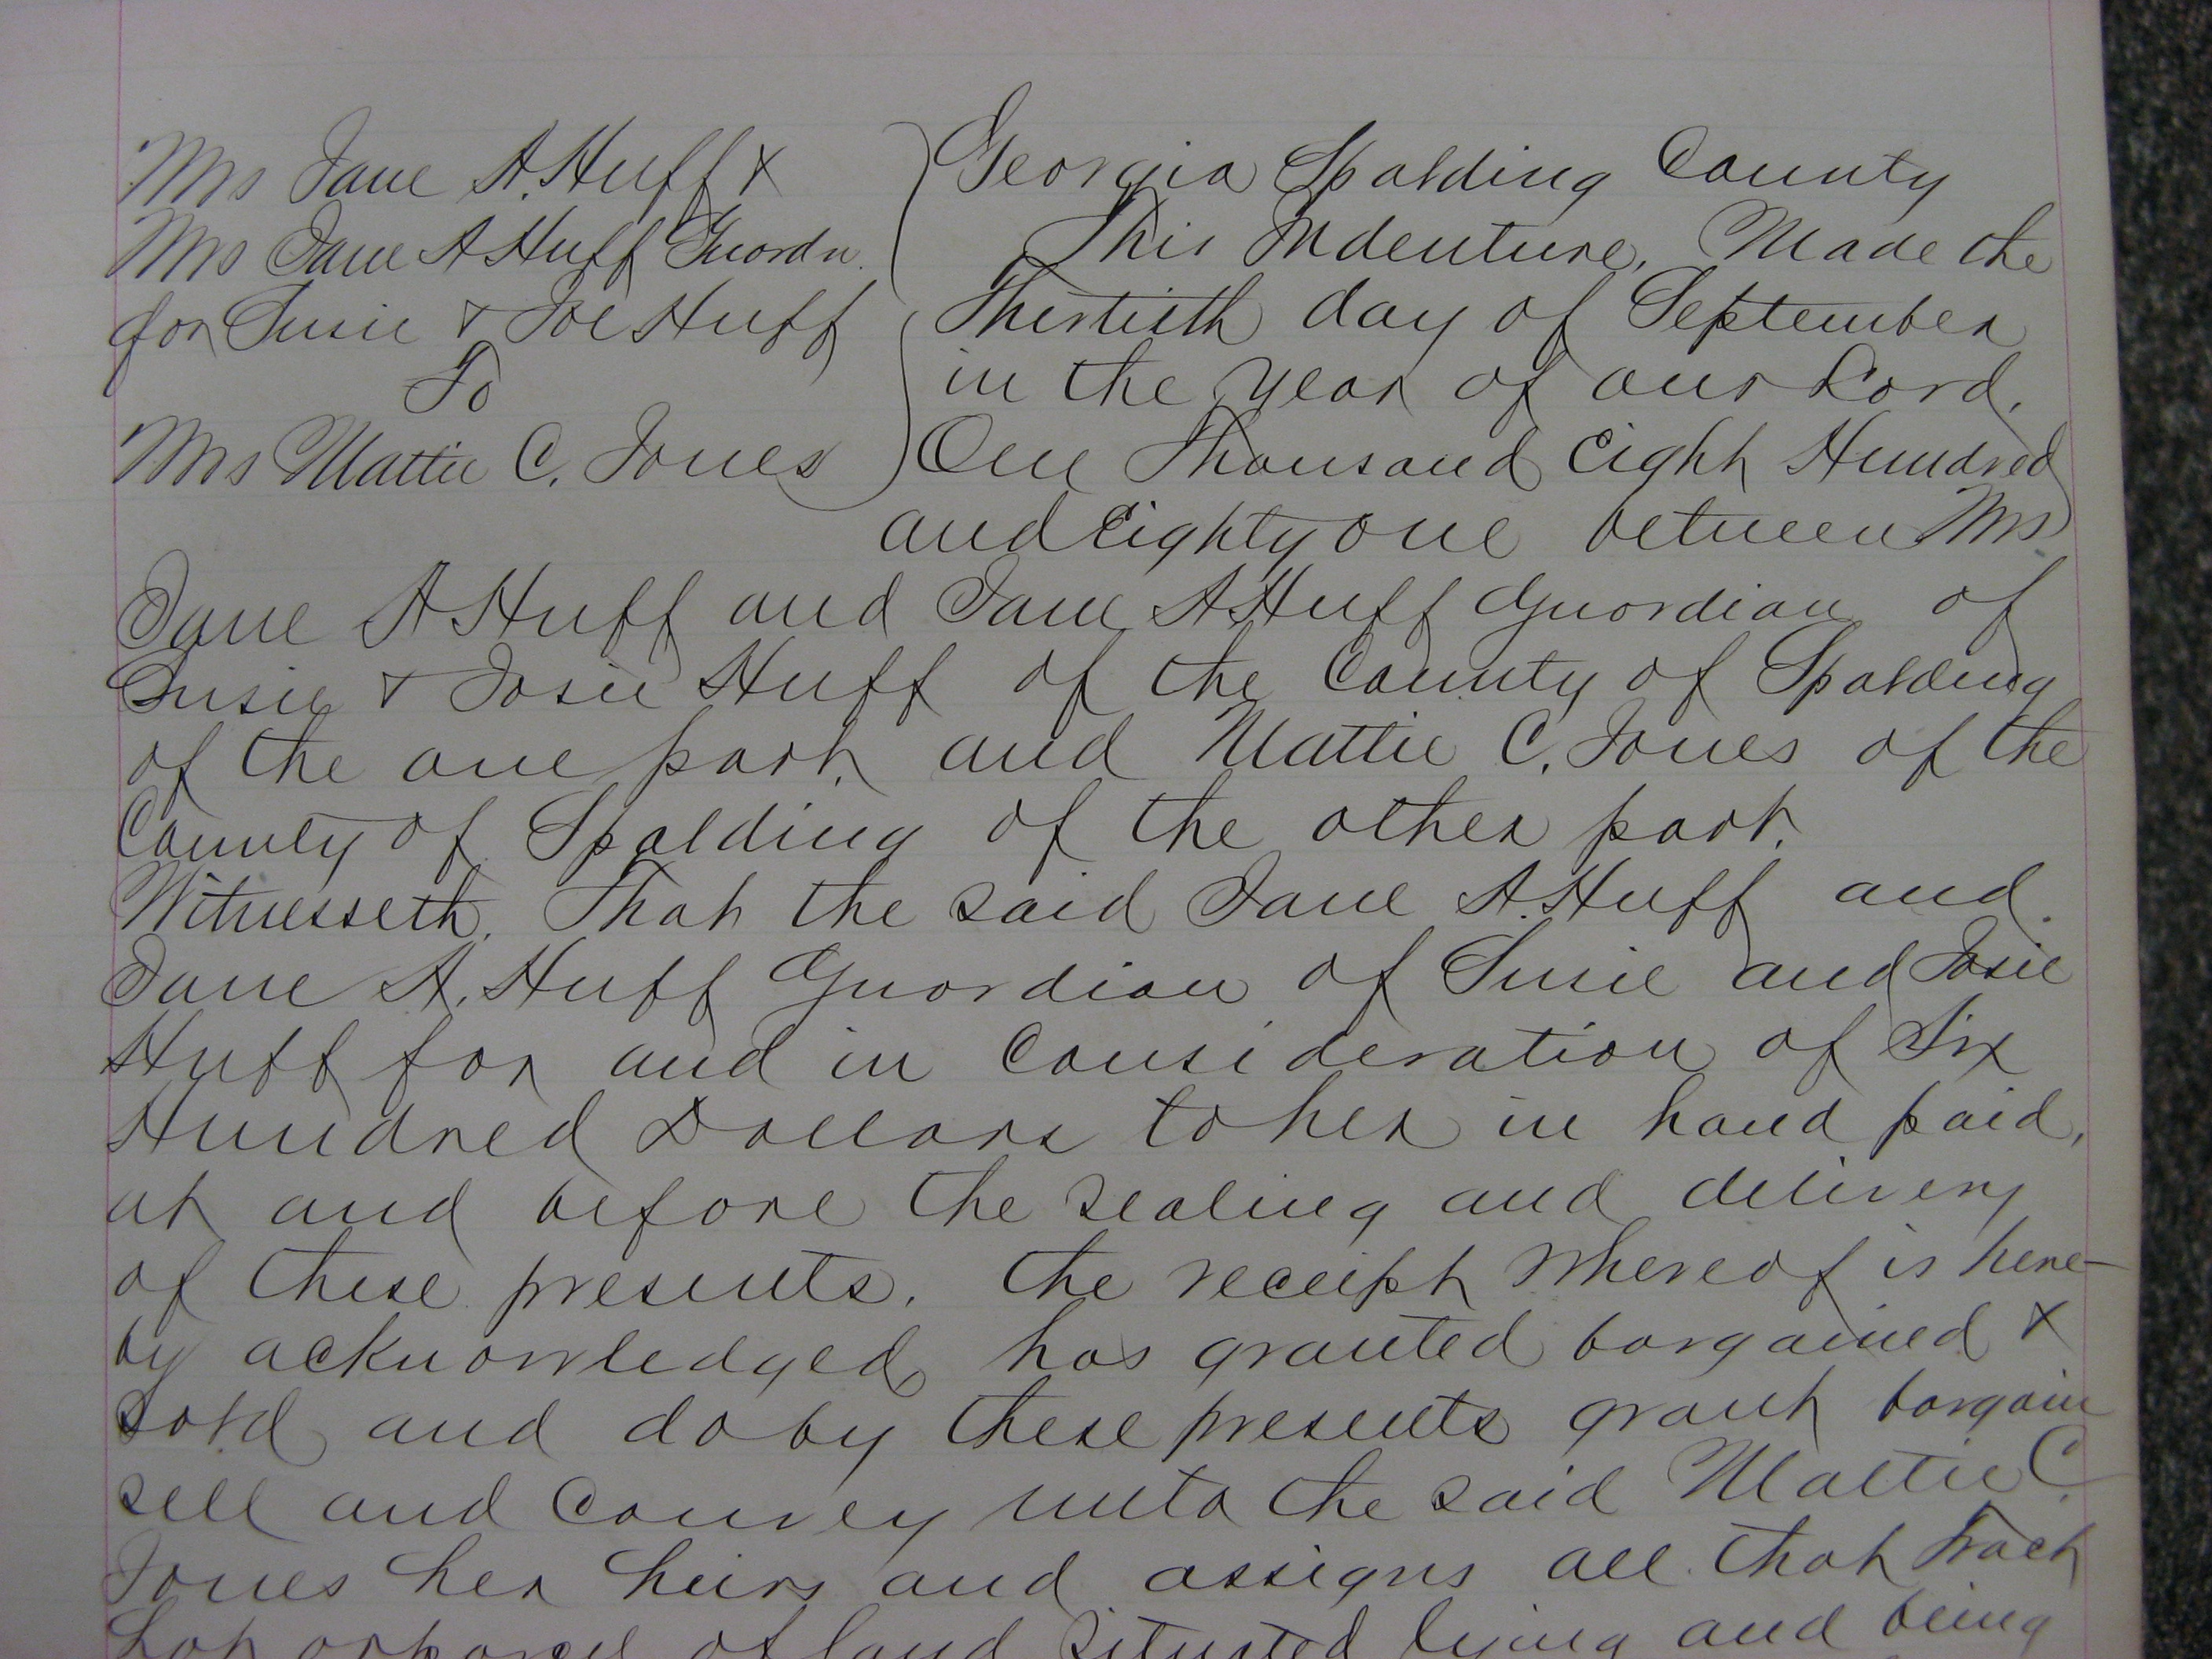 Mrs Jane A. Huff &
Mrs Jane A Huff Guardn.
for Susie & Joe Huff
To
Mrs Mattie C. Jones
Georgia Spalding County
This Indenture, Made the
Thirtieth day of September
in the year of our Lord,
One Thousand Eight Hundred
and Eighty one between Mrs
Jane A Huff and Jane A Huff Guardian of
Susie & Josie Huff of the County of Spalding
of the one part, and Mattie C. Jones of the
County of Spalding of the other part.
Witnesseth. That the said Jane A. Huff and
Jane A. Huff Guardian of Susie and Josie
Huff for and in Consideration of Six
Hundred Dollars to her in hand paid,
at and before the sealing and delivery
of these presents. the receipt whereof is here-
by acknowledged, has granted bargained &
sold and do by these presents grant bargain
sell and Convey unto the said Mattie C.
Jones her heirs and assigns all that Tract
Lot or parcel of land situated lying and being